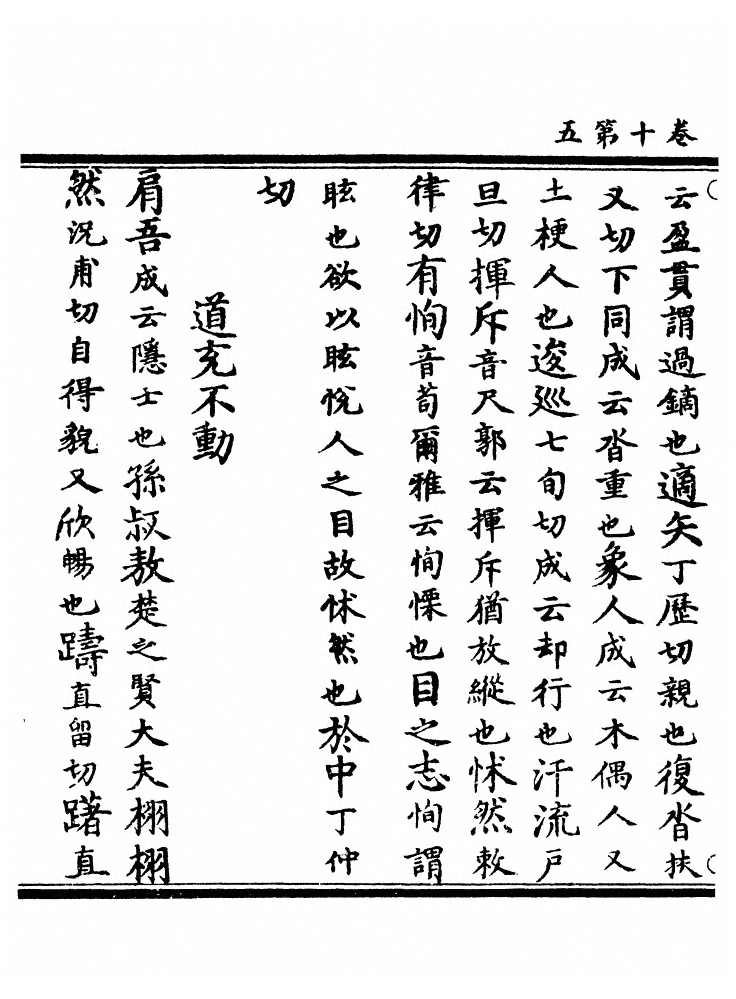 五第十卷
云盈貫謂過鏑也適矢丁歷切親也復沓扶
又切下同成云沓重也象人成云木偶人又
土梗人也逡巡七旬切成云却行也汗流戸
旦切揮斥音尺郭云揮斥猶放縱也怵然敕
律切有恂音荀爾雅云恂慄也目之志恂謂
眩也欲以眩恱人之目故怵然也於中丁仲
切
道充不動
肩吾成云隱士也孫叔敖楚之賢大夫栩栩
然況甫切自得貌又欣暢也躊直留切躇直